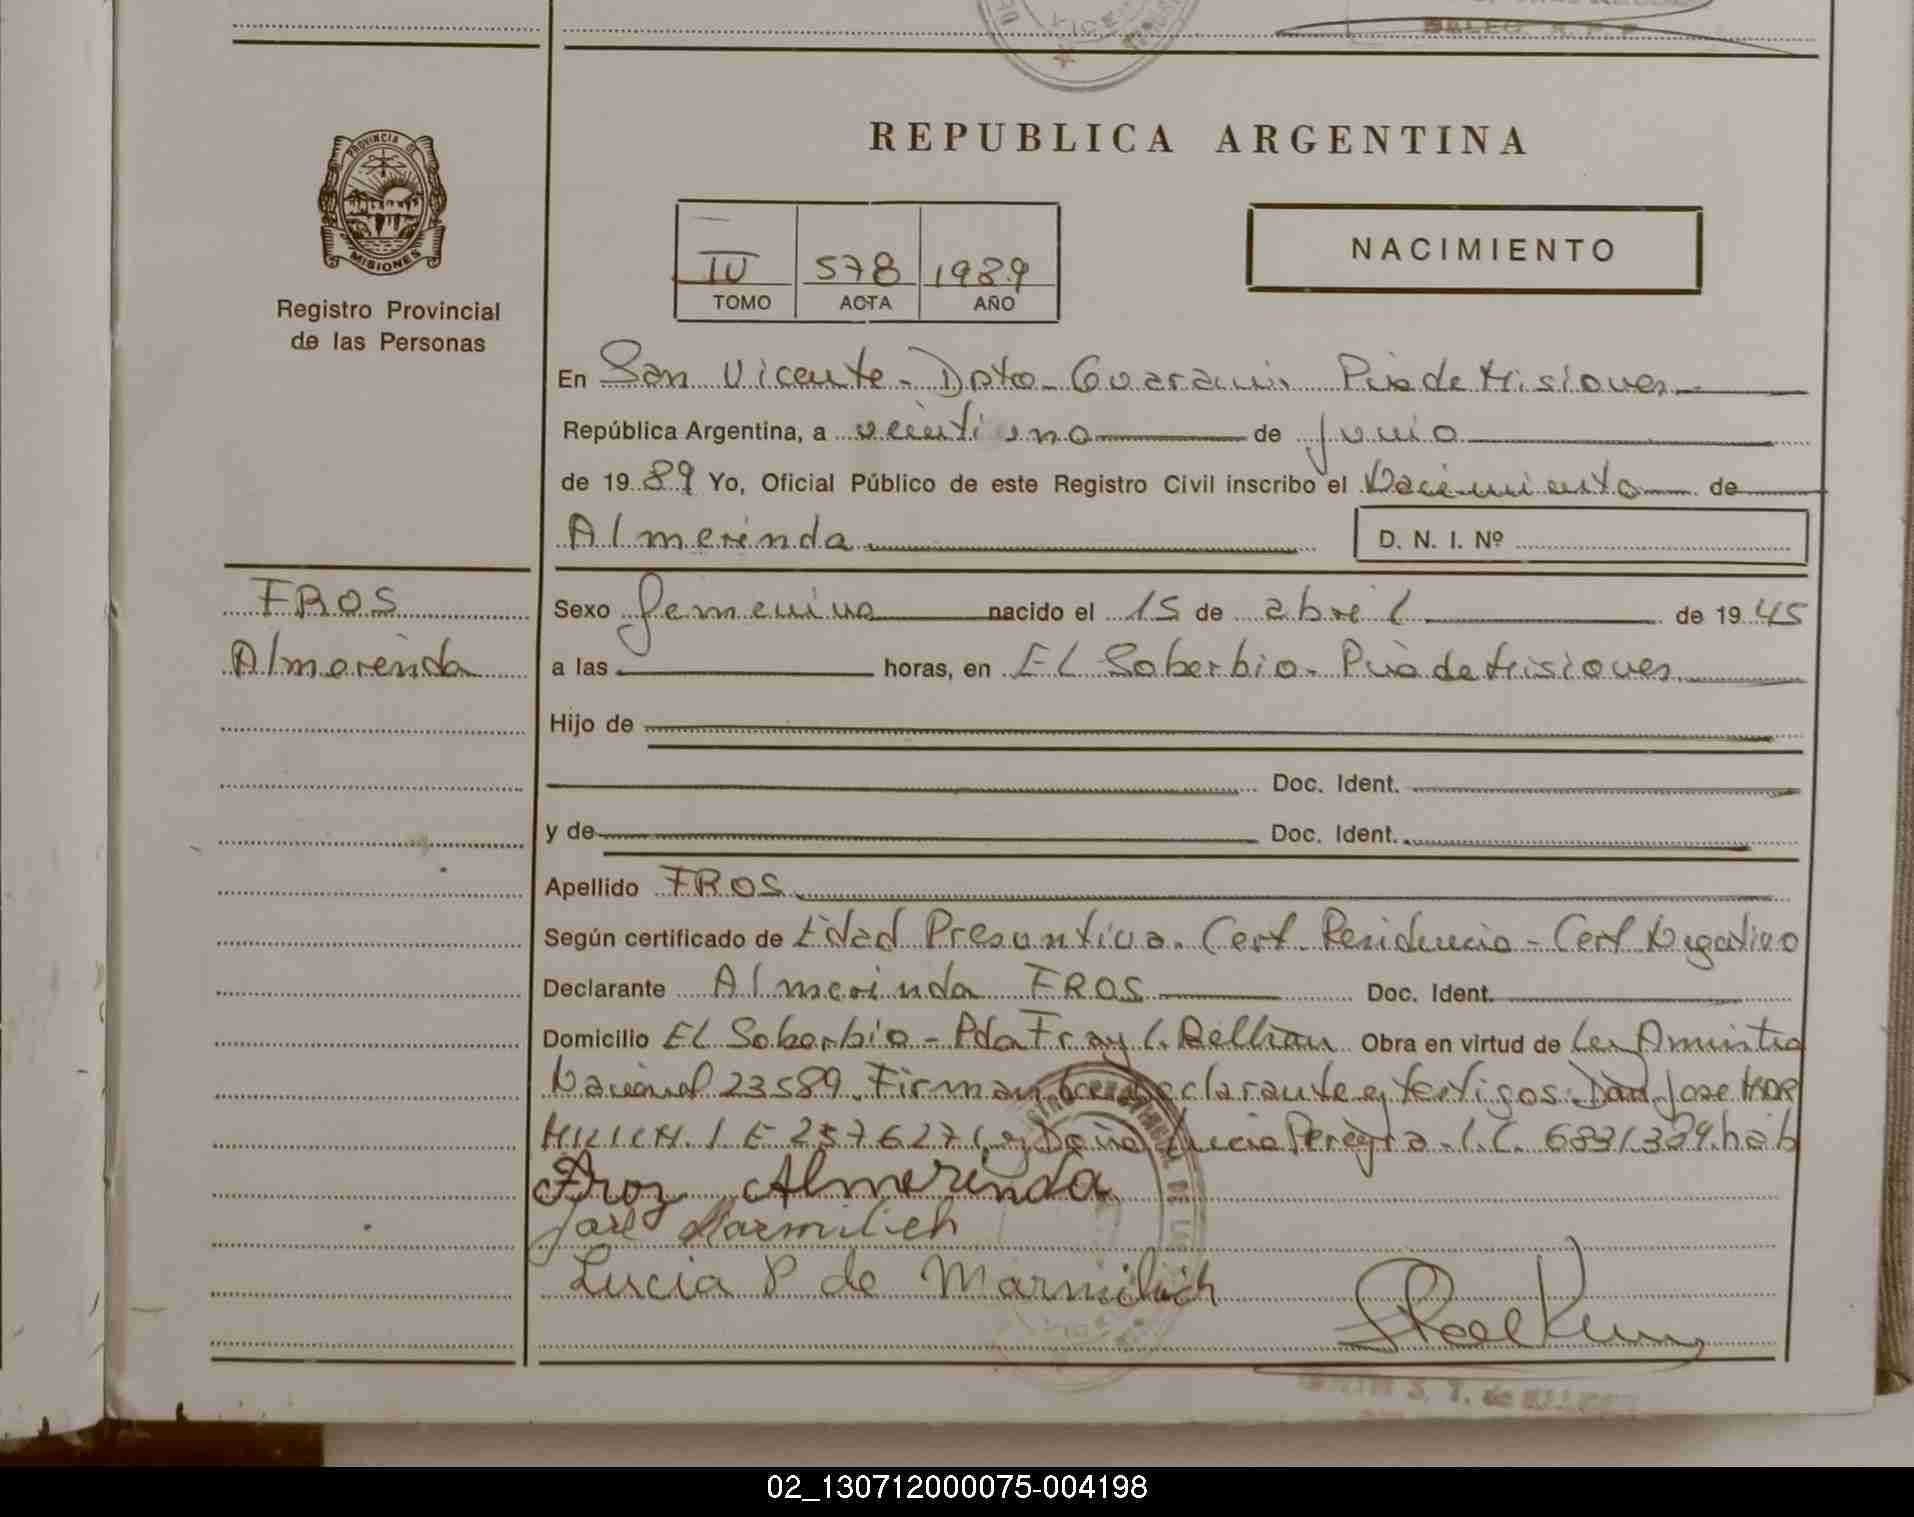 REPUBLICA ARGENTINA
PROVINCIA DE
MISIONES
Registro Provincial
de las Personas
IV 578 1989
TOMO ACTA AÑO
NACIMIENTO
En San Vicente - Dpto - Guarani Pcia de Misiones
República Argentina, a veintiuno de junio
de 1989 Yo, Oficial Público de este Registro Civil inscribo el Nacimiento de
Almerinda D. N. I. Nº
FROS
Almerenda
Sexo femenino nacido el 15 de abril de 1945
a las horas, en EL Soberbio - Pcia de Misiones
Hijo de
Doc. Ident.
y de Doc. Ident.
Apellido FROS
Según certificado de Edad Presuntiva - Cert. Residencia - Cert Negativo
Declarante Almerinda FROS Doc. Ident.
Domicilio EL Soberbio - Pda Fray L. Beltran Obra en virtud de Ley Amnistia
Nacional 23589. Firman declarante y testigos: Don Jose MAR
MILICH. I E 2576271 y Doña Lucia Peregra - L.C. 6831.389. hab
Froz Almerinda
Jose Marmilich
Lucia P de Marmilich
02_130712000075-004198